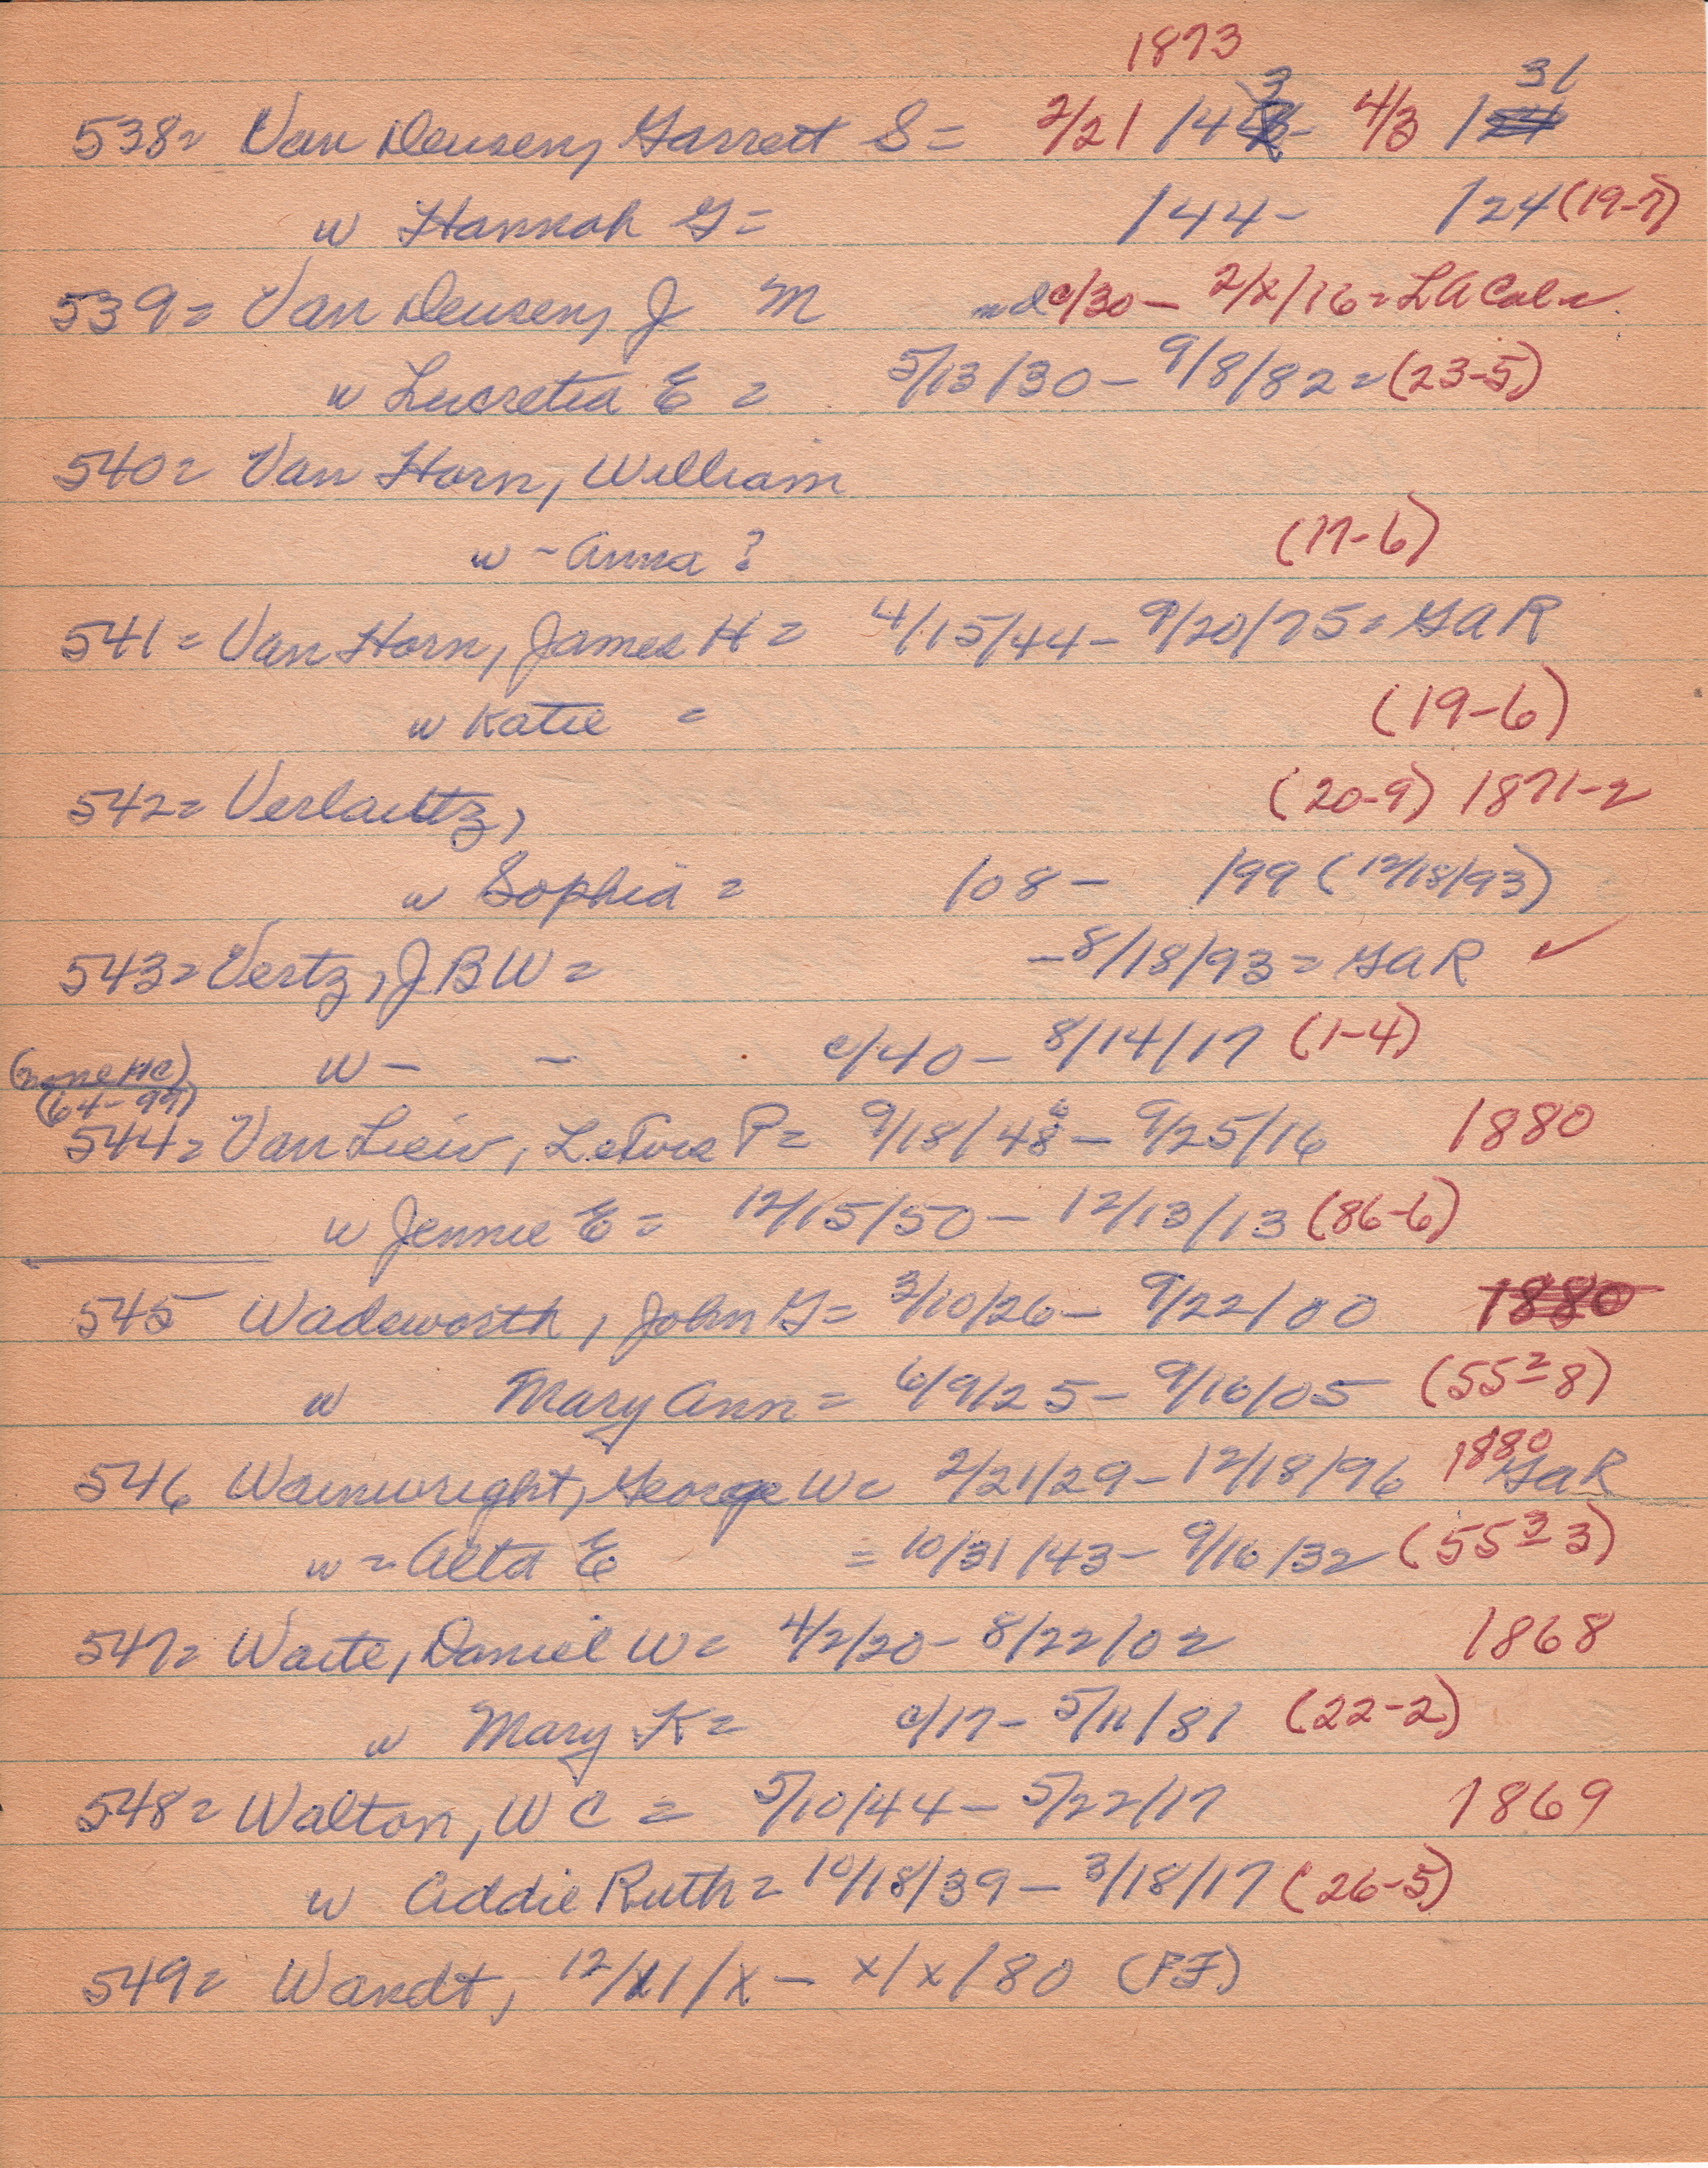 1873
538= Van Deusen, Garrett S= 2/21 /43- 4/3 /31
w Hannah G= /44- /24 (19-7)
539= Van Deusen, J M nd c/30- 2/x/16= LA Cal=
w Lucretia E = 5/13/30- 9/8/82= (23-5)
540= Van Horn, William
w - Anna? (17-6)
541= Van Horn, James H= 4/15/44- 9/20/75= GAR
w Katie = (19-6)
542= (20-9) 1871-2
w Sophia = /08- /99 (12/18/93)
543= Vertz, J B W= -8/18/93= GAR ✓
w - - c/40- 8/14/17 (1-4)
(64-99)
544= Van Leiw, P= 9/18/48- 9/25/16 1880
w Jennie E= 12/15/50- 12/13/13 (86-6)
545 Wadsworth, John G= 3/10/26- 9/22/00 1880
w Mary Ann= 6/9/25- 9/16/05 (55²-8)
546 Wainwright, George W= 2/21/29- 12/18/96 1880 GAR
w = Alta E = 10/31/43- 9/16/32 (55²-3)
547= Waite, Daniel W= 4/2/20- 8/22/02 1868
w Mary K= c/17- 5/11/81 (22-2)
548= Walton, W C = 5/10/44- 5/22/17 1869
w Addie Ruth= 10/18/39- 3/18/17 (26-5)
549= Wandt, 12/11/x- x/x/80 (PF)